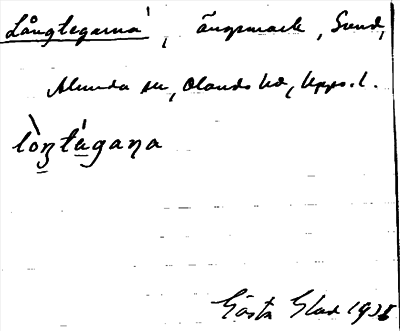 Långtegarna, ängsmark, Sund,
Alunda sn, Olands hd, Upps. l.
lòŋtágaṇa
Gösta Glad